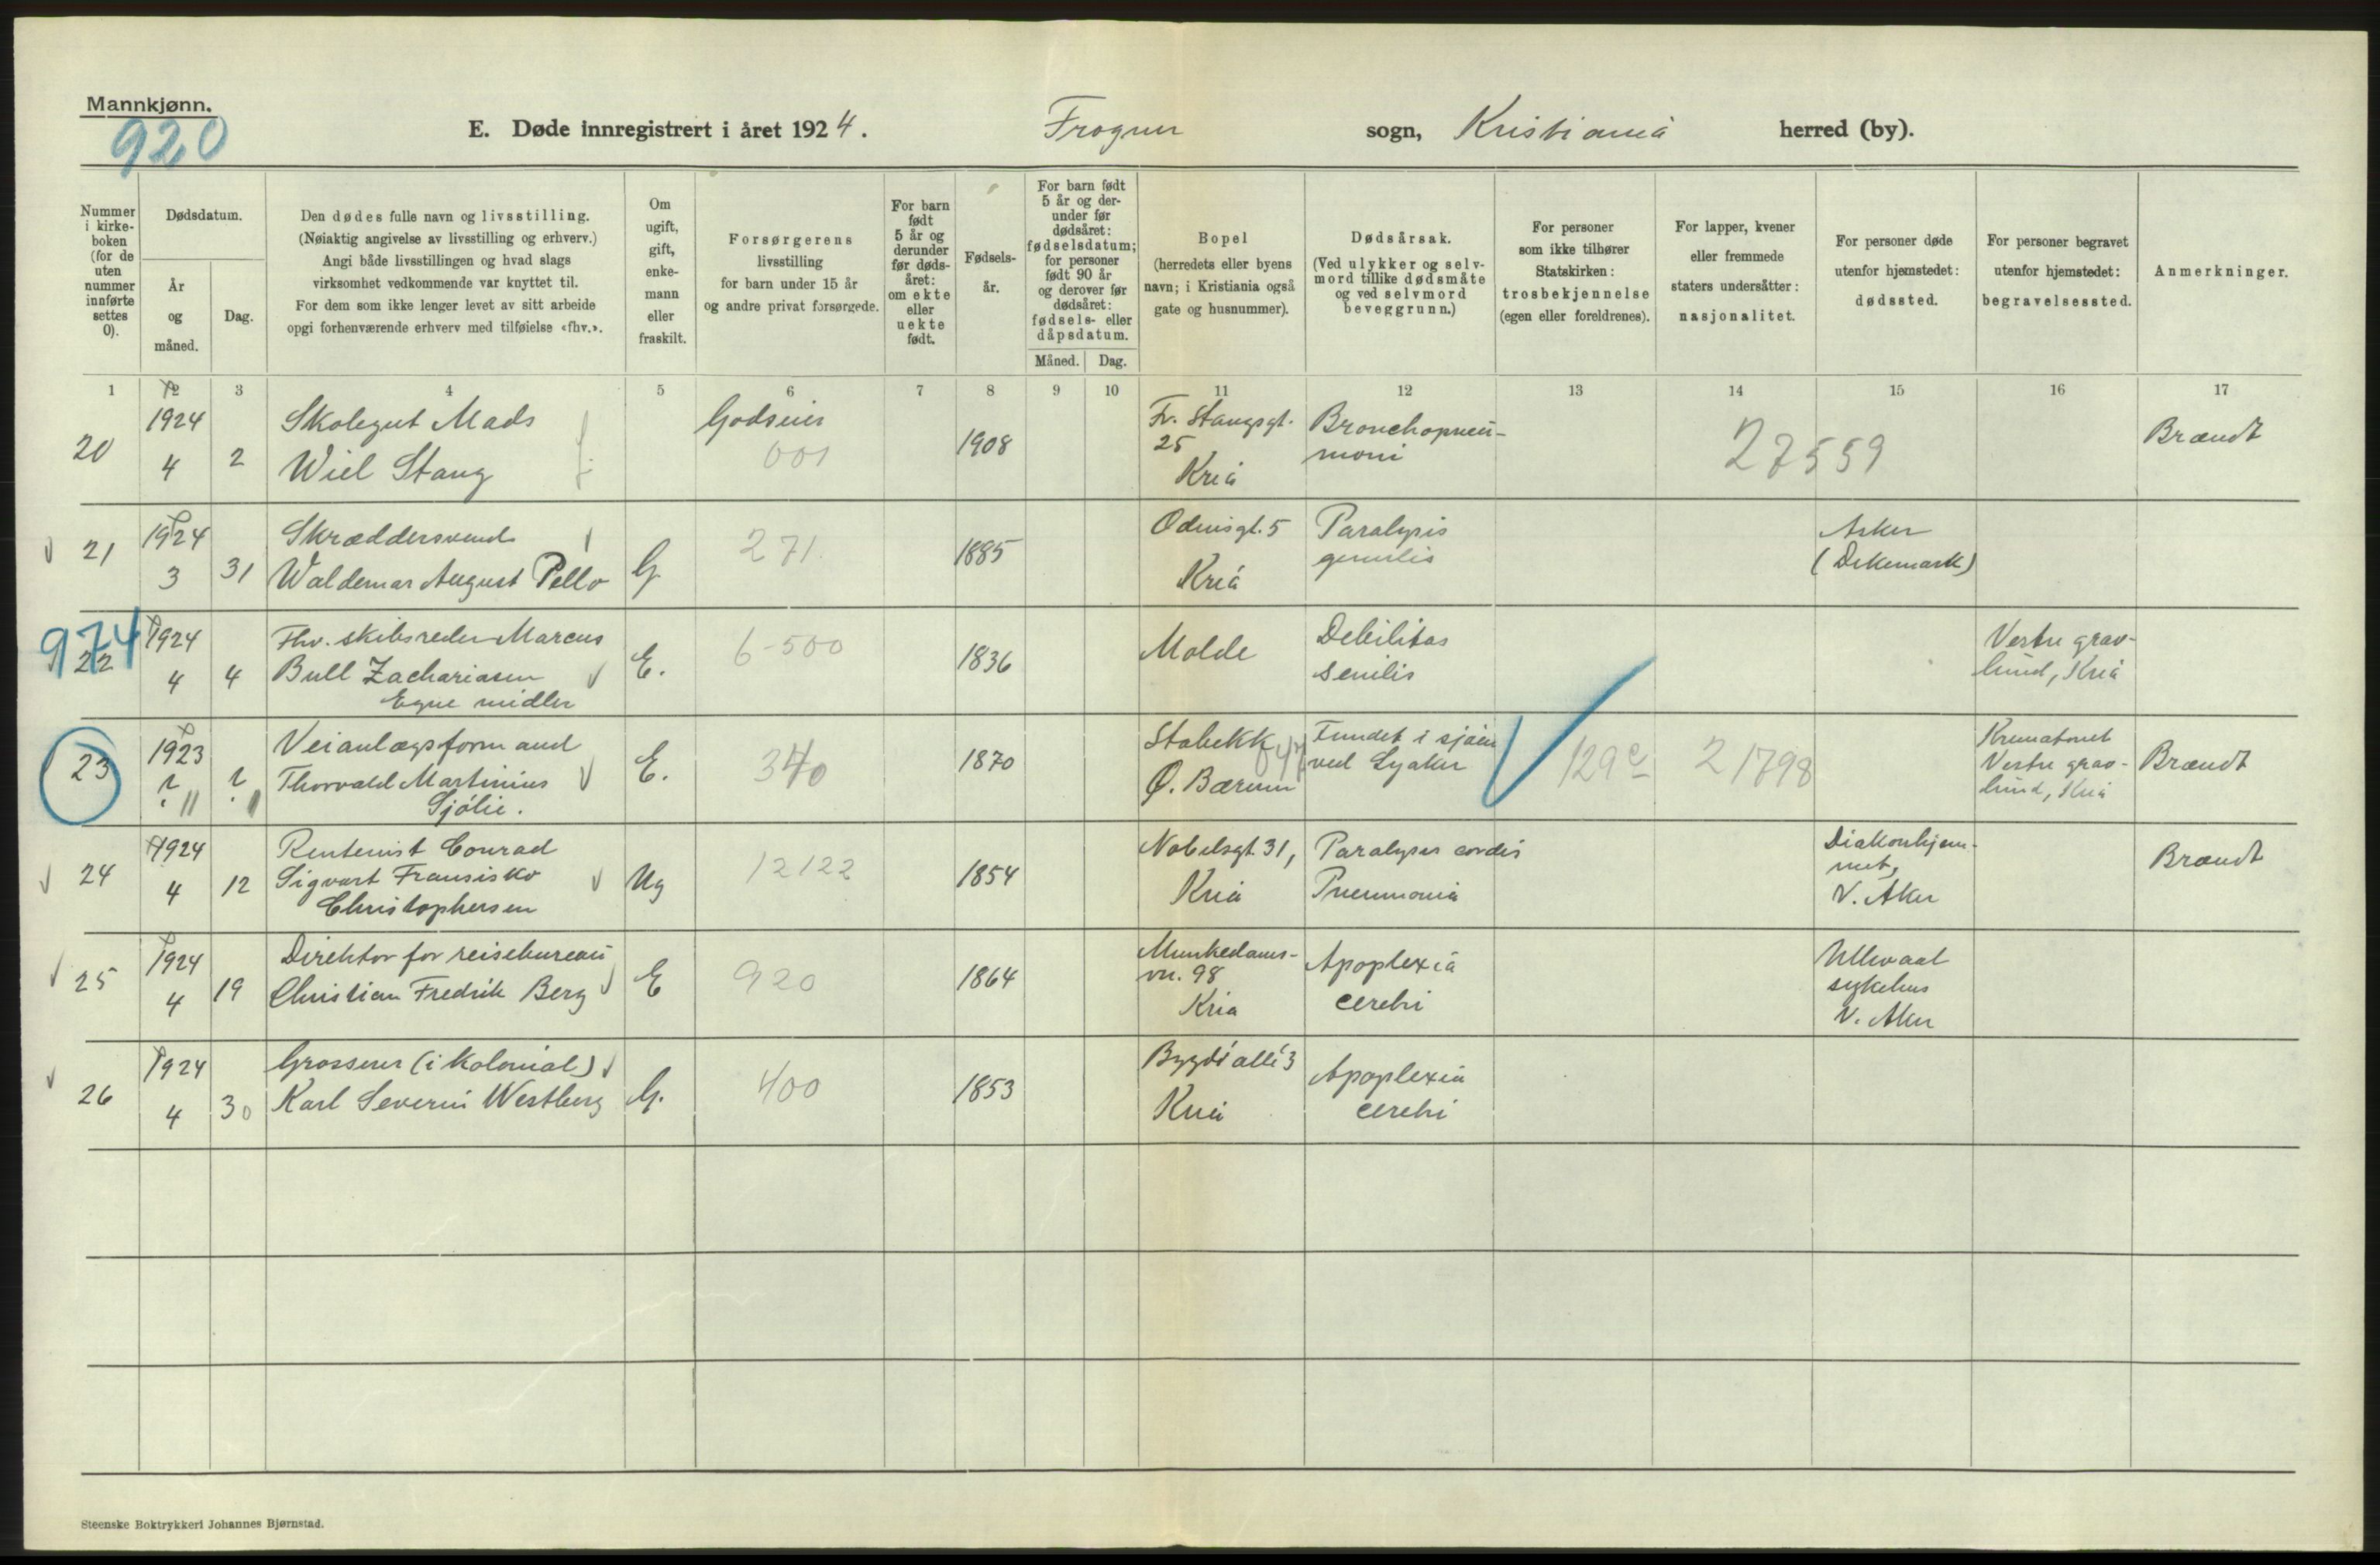 Mannkjønn.
920
E. Døde innregistrert i året 1924. Frogner sogn, Kristiania herred (by).
Nummer i kirkeboken (for de uten nummer innførte settes 0).
Dødsdatum.
År og måned.
Dag.
Den dødes fulle navn og livsstilling.
(Nøiaktig angivelse av livsstilling og erhverv.)
Angi både livsstillingen og hvad slags
virksomhet vedkommende var knyttet til.
For dem som ikke lenger levet av sitt arbeide
opgi forhenværende erhverv med tilføielse «fhv.».
Om ugift, gift, enkemann eller fraskilt.
Forsørgerens
livsstilling
for barn under 15 år
og andre privat forsørgede.
For barn født 5 år og derunder før dødsåret: om ekte eller uekte født.
Fødselsår.
For barn født 5 år og derunder før dødsåret: fødselsdatum; for personer født 90 år og derover før dødsåret: fødsels- eller dåpsdatum.
Måned. Dag.
Bopel
(herredets eller byens
navn; i Kristiania også
gate og husnummer).
Dødsårsak.
(Ved ulykker og selvmord tillike dødsmåte
og ved selvmord
beveggrunn.)
For personer
som ikke tilhører
Statskirken:
trosbekjennelse
(egen eller foreldrenes).
For lapper, kvener
eller fremmede
staters undersåtter:
nasjonalitet.
For personer døde
utenfor hjemstedet:
dødssted.
For personer begravet
utenfor hjemstedet:
begravelsessted.
Anmerkninger.
1 2 3 4 5 6 7 8 9 10 11 12 13 14 15 16 17
20 1924 4 2 Skolegut Mads
Wiel Stang
Godseier
001
1908 Fr. Stangsgt.
25
Kria
Bronchopneu-
moni
27559
Brandt
21 1924 3 31 Skræddersvend
Waldemar August Pello
G. 271 1885 Odinsgt. 5
Kria
Paralysis
generalis
Asker
(Dikemark)
974
22 1924 4 4 Fhv. skibsreder Marcus
Bull Zachariasen
Egne midler
E. 6-500 1836 Molde
Debilitas
senilis
Vestre grav-
lund, Kria
23 1923 ? 11 ? Veianlægsformand
Thorvald Martinius
Sjölie.
E. 340 1870 Stabekk
Ø. Bærum
Fundet i sjøen
ved Lysaker
129c 21798
Krematoriet
Vestre grav-
lund, Kria
Brandt
24 1924 4 12 Rentenist Conrad
Sigvart Fransisko
Christophersen
Ug 12122 1854 Nobelsgt. 31,
Kria
Paralyses cordis
Pneumonia
Diakonhjem-
met,
V. Aker
Brandt
25 1924 4 19 Direktør for reisebureau
Christian Fredrik Berg
E 920 1864 Munkedams-
vn. 98
Kria
Apoplexia
cerebri
Ullevaal
sykehus
V. Aker
26 1924 4 30 Grosserer (i kolonial)
Karl Severin Westberg
G. 400 1853 Bygdö allé 3
Kria
Apoplexia
cerebri
Steenske Boktrykkeri Johannes Bjørnstad.